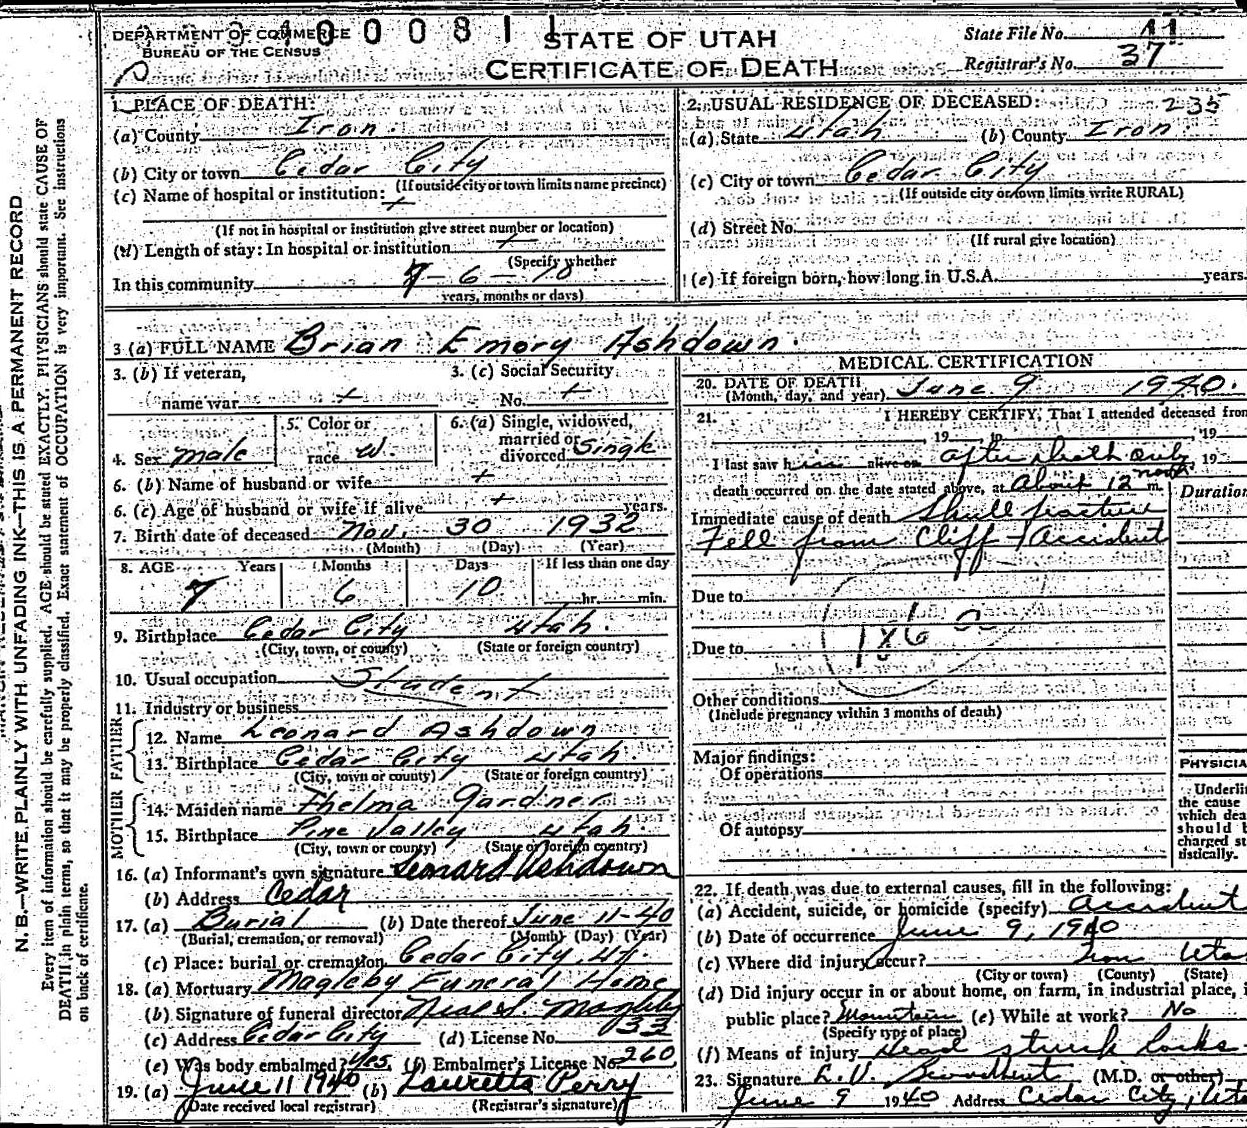 DEPARTMENT OF COMMERCE
BUREAU OF THE CENSUS
400081
STATE OF UTAH
CERTIFICATE OF DEATH
State File No. 41
Registrar's No. 37
1. PLACE OF DEATH:
(a) County Iron
(b) City or town Cedar City
(If outside city or town limits name precinct)
(c) Name of hospital or institution: +
(If not in hospital or institution give street number or location)
(d) Length of stay: In hospital or institution +
(Specify whether
In this community 7-6-10
years, months or days)
2. USUAL RESIDENCE OF DECEASED: 235
(a) State Utah (b) County Iron
(c) City or town Cedar City
(If outside city or town limits write RURAL)
(d) Street No.
(If rural give location)
(e) If foreign born, how long in U.S.A. years.
3 (a) FULL NAME Brian Emory Ashdown.
3. (b) If veteran, name war +
3. (c) Social Security No. +
4. Sex male
5. Color or race W.
6. (a) Single, widowed, married or divorced Single
6. (b) Name of husband or wife +
6. (c) Age of husband or wife if alive + years.
7. Birth date of deceased Nov. 30 1932
(Month) (Day) (Year)
8. AGE Years Months Days If less than one day
7 6 10 hr. min.
9. Birthplace Cedar City Utah.
(City, town, or county) (State or foreign country)
10. Usual occupation Student
11. Industry or business
FATHER
12. Name Leonard Ashdown
13. Birthplace Cedar City Utah.
(City, town or county) (State or foreign country)
MOTHER
14. Maiden name Thelma Gardner
15. Birthplace Pine Valley Utah.
(City, town or county) (State or foreign country)
16. (a) Informant's own signature Leonard Ashdown
(b) Address Cedar
17. (a) Burial (b) Date thereof June 11-40
(Burial, cremation, or removal) (Month) (Day) (Year)
(c) Place: burial or cremation Cedar City, Ut.
18. (a) Mortuary Magleby Funeral Home
(b) Signature of funeral director Neal S. Magleby
(c) Address Cedar City (d) License No. 33
(e) Was body embalmed? Yes. (f) Embalmer's License No. 260
19. (a) June 11 1940 (b) Lauretta Perry
(Date received local registrar) (Registrar's signature)
MEDICAL CERTIFICATION
20. DATE OF DEATH June 9 1940.
(Month, day, and year)
21. I HEREBY CERTIFY, That I attended deceased from
19 to 19
I last saw him alive on after death only 19
death occurred on the date stated above, at About 12 noon m.
Duration
Immediate cause of death Skull fracture
Fell from Cliff Accident
Due to
186 a
Due to
Other conditions
(Include pregnancy within 3 months of death)
Major findings:
Of operations
Of autopsy
PHYSICIA
Underli
the cause
which dea
should b
charged st
tistically.
22. If death was due to external causes, fill in the following:
(a) Accident, suicide, or homicide (specify) Accident
(b) Date of occurrence June 9, 1940
(c) Where did injury occur? Iron Uta
(City or town) (County) (State)
(d) Did injury occur in or about home, on farm, in industrial place, i
public place? Mountain (e) While at work? No
(Specify type of place)
(f) Means of injury Head struck rocks
23. Signature (M.D. or other)
June 9 1940 Address Cedar City, Uta
N. B.—WRITE PLAINLY WITH UNFADING INK—THIS IS A PERMANENT RECORD
Every item of information should be carefully supplied. AGE should be stated EXACTLY. PHYSICIANS should state CAUSE OF
DEATH in plain terms, so that it may be properly classified. Exact statement of OCCUPATION is very important. See instructions
on back of certificate.